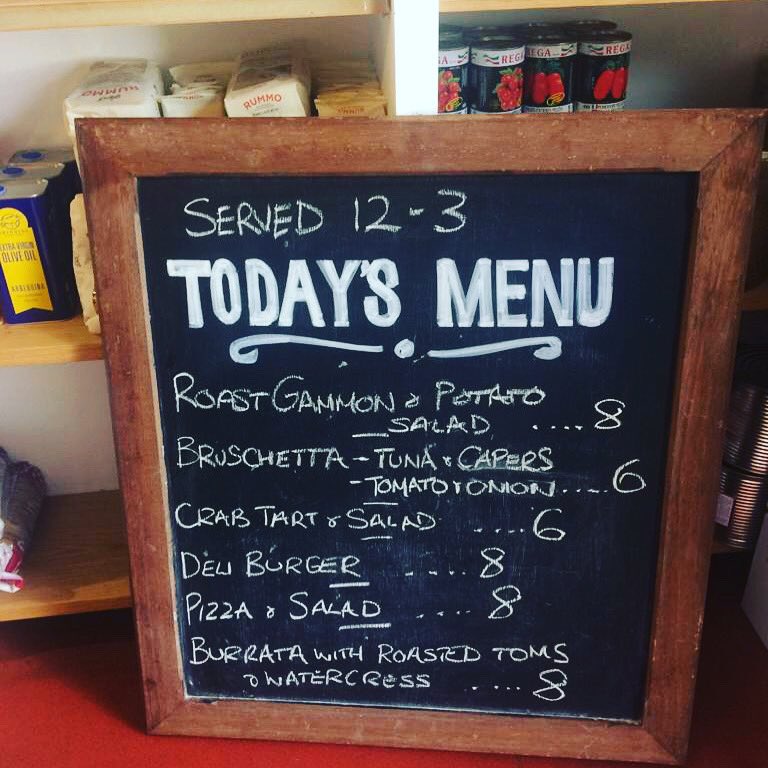 RUMMO
RUMMO
REGA
REGA
REGA
EXTRA VIRGIN
OLIVE OIL
ARBEQUINA
SERVED 12-3
TODAY'S MENU
ROAST GAMMON & POTATO
SALAD .... 8
BRUSCHETTA - TUNA & CAPERS
- TOMATO & ONION .... 6
CRAB TART & SALAD .... 6
DELI BURGER .... 8
PIZZA & SALAD .... 8
BURRATA WITH ROASTED TOMS
& WATERCRESS .... 8